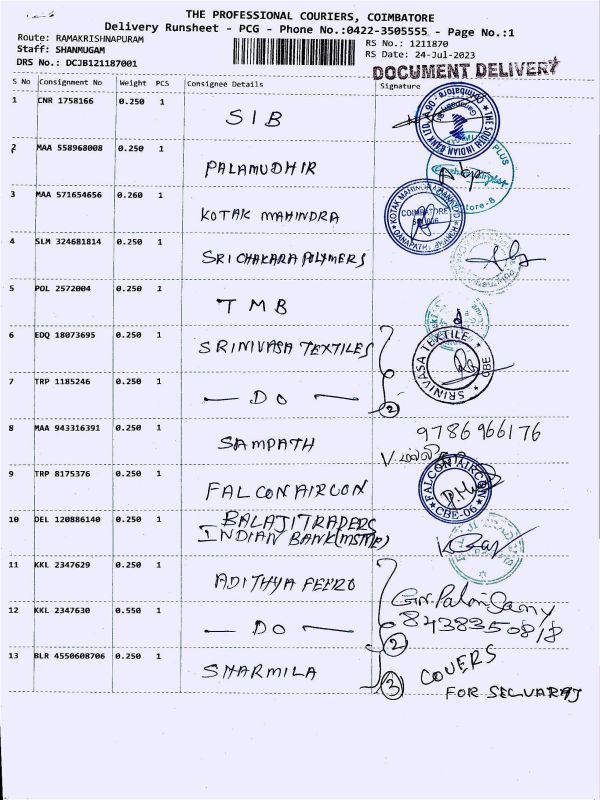 THE PROFESSIONAL COURIERS, COIMBATORE
Delivery Runsheet - PCG - Phone No.:0422-3505555 - Page No.:1
Route: RAMAKRISHNAPURAM
Staff: SHANMUGAM
DRS No.: DCJB121187001
RS No.: 1211870
RS Date: 24-Jul-2023
DOCUMENT DELIVERY
S No Consignment No Weight PCS Consignee Details Signature
1 CNR 1758166 0.250 1 SIB
2 MAA 558968008 0.250 1 PALAMUDHIR
3 MAA 571654656 0.260 1 KOTAK MAHINDRA
4 SLM 324681814 0.250 1 SRI CHAKARA POLYMERS
5 POL 2572004 0.250 1 TMB
6 EDQ 18073695 0.250 1 SRINIVASA TEXTILES
SRINIVASA TEXTILE * CBE *
7 TRP 1185246 0.250 1 — DO — 2
8 MAA 943316391 0.250 1 SAMPATH 9786966176
9 TRP 8175376 0.250 1 FALCON AIRCON
FALCON AIRCON CBE-06
10 DEL 120886140 0.250 1 BALAJI TRADERS
INDIAN BANK
11 KKL 2347629 0.250 1 ADITHYA FERRO
12 KKL 2347630 0.550 1 — DO — 8438350818
2
13 BLR 4550608706 0.250 1 SHARMILA 3 COVERS
FOR SELVARAJ